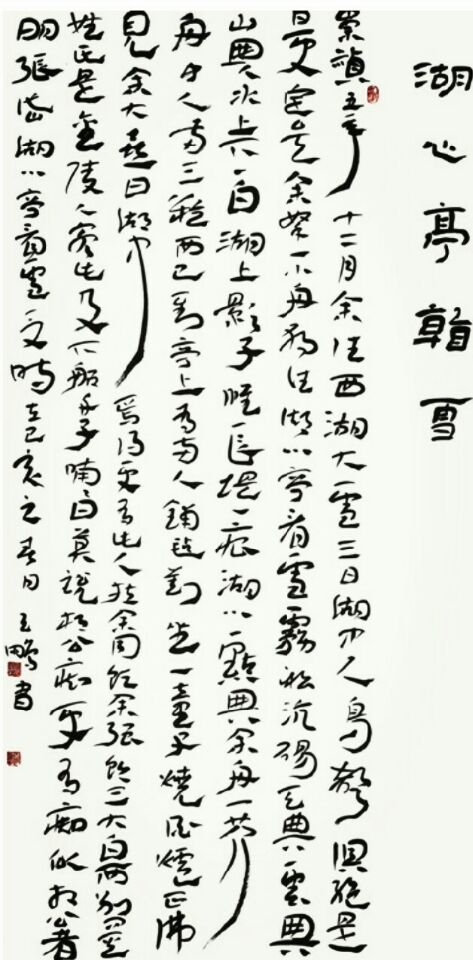 湖心亭看雪
崇禎五年十二月余住西湖大雪三日湖中人鳥聲俱絕是
日更定矣余拏一小舟獨往湖心亭看雪霧凇沆碭天與雲與
山與水上下一白湖上影子唯長堤一痕湖心一點與余舟一芥
舟中人兩三粒而已到亭上有兩人鋪氈對坐一童子燒酒爐正沸
見余大喜曰湖中焉得更有此人拉余同飲余強飲三大白而別問其
姓氏是金陵人客此及下船舟子喃喃曰莫說相公痴更有痴似相公者
明張岱湖心亭看雪文時在己亥之春日王鵬書